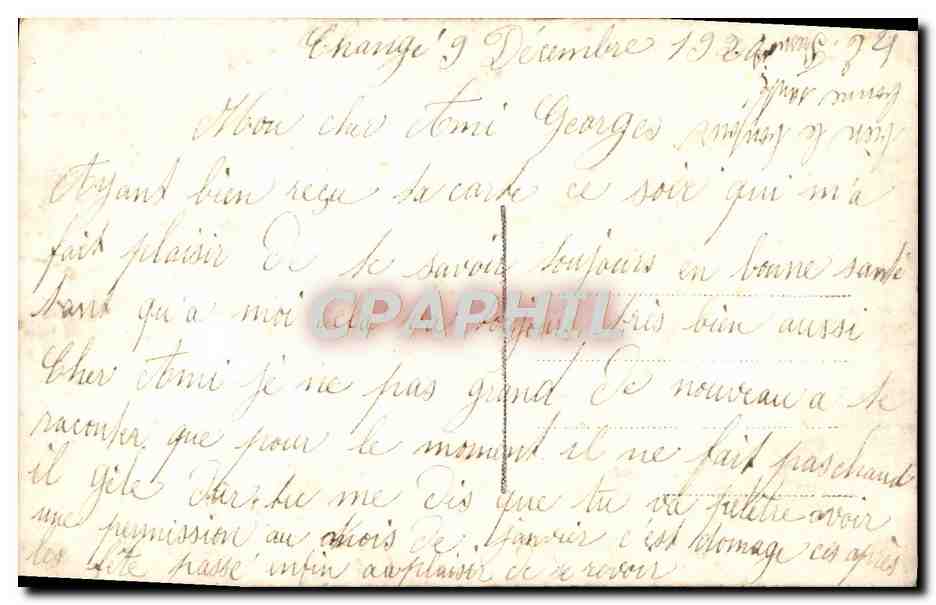 Changé 9 Décembre 192
Mon cher Ami Georges
Ayant bien reçu ta carte ce soir qui m'a
fait plaisir de te savoir toujours en bonne santé
tant qu'a moi cela va toujours très bien aussi
CPAPHIL
Cher Ami je ne pas grand de nouveau a te
raconter que pour le moment il ne fait pas chaud
il gèle dur tu me dis que tu va peutetre avoir
une permission au mois de janvier c'est domage ces après
les fête passé enfin au plaisir de te revoir